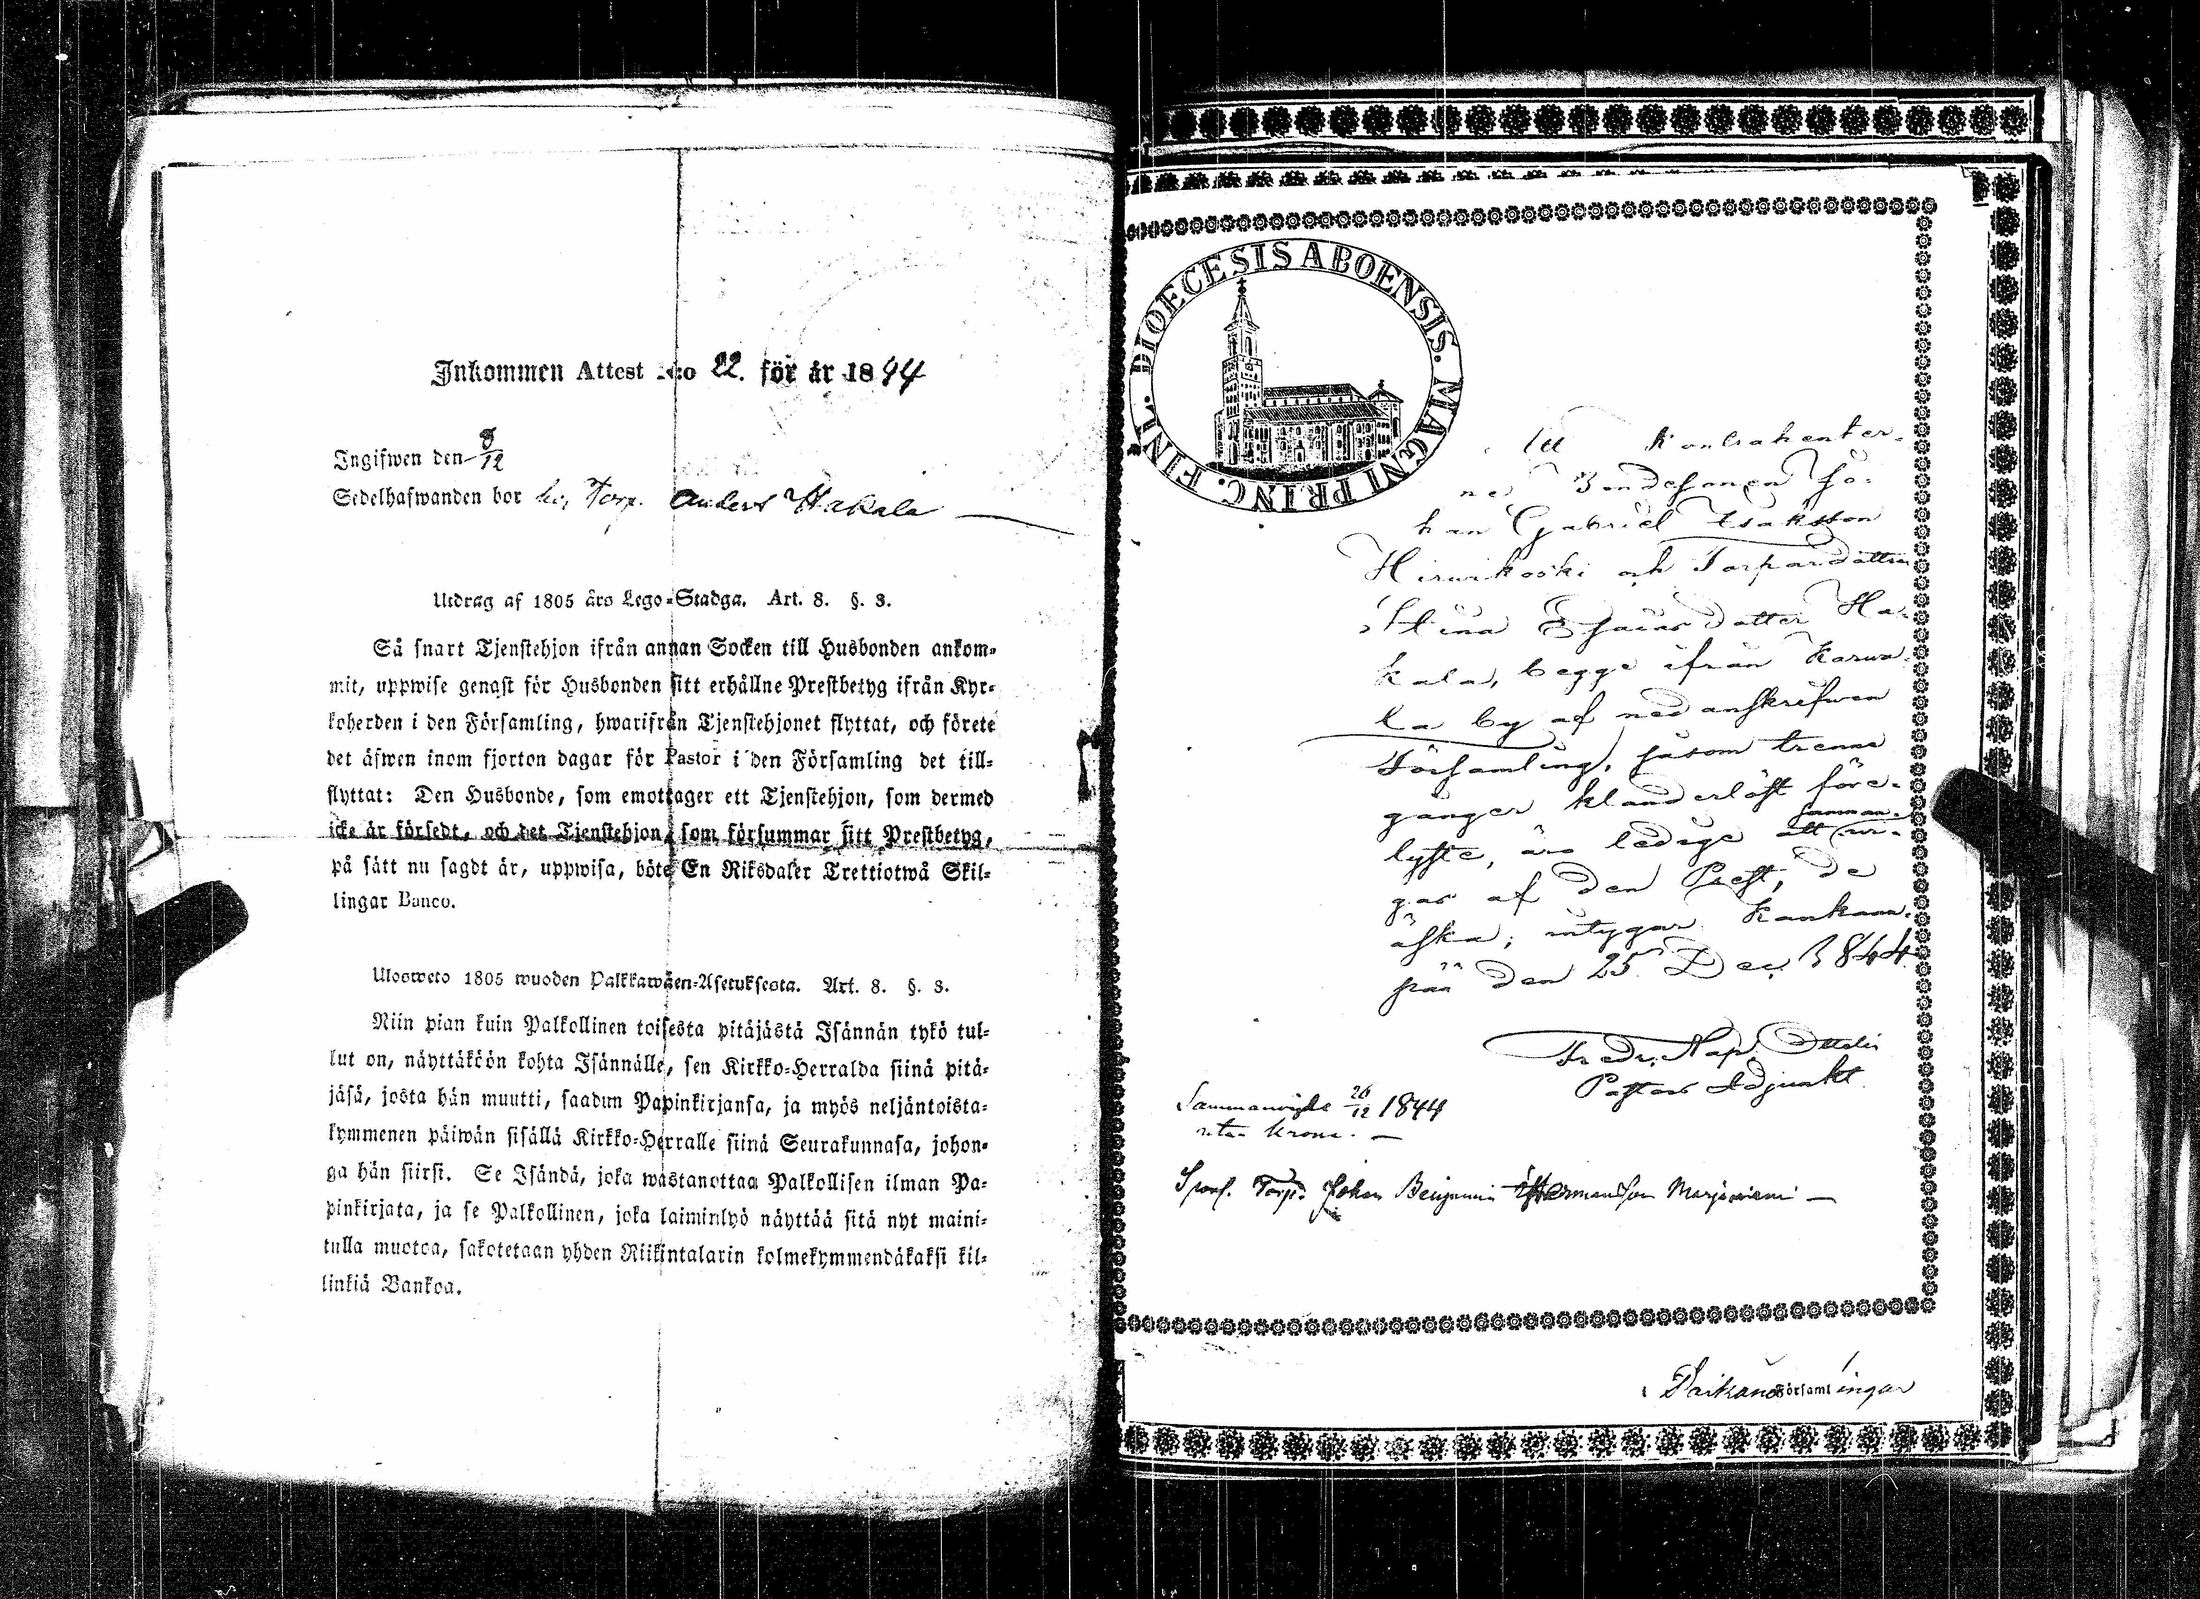 Inkommen Attest N:o 22. för år 1844
Ingifwen den 8/12
Sedelhafwanden bor hos Torp. Anders Hakala
Utdrag af 1805 års Lego-Stadga. Art. 8. §. 3.
Så snart Tjenstehjon ifrån annan Socken till Husbonden ankom-
mit, uppwise genast för Husbonden sitt erhållne Prestbetyg ifrån Kyr-
koherden i den Församling, hwarifrån Tjenstehjonet flyttat, och förete
det äfwen inom fjorton dagar för Pastor i den Församling det till-
flyttat: Den Husbonde, som emottager ett Tjenstehjon, som dermed
icke är försedt, och det Tjenstehjon, som försummar sitt Prestbetyg,
på sätt nu sagdt är, uppwisa, böte En Riksdaler Trettiotwå Skil-
lingar Banco.
Ulosweto 1805 wuoden Palkkawäen-Asetuksesta. Art. 8. §. 3.
Niin pian kuin Palkollinen toisesta pitäjästä Isännän tykö tul-
lut on, näyttäköön kohta Isännälle, sen Kirkko-Herralda siinä pitä-
jäsä, josta hän muutti, saadun Papinkirjansa, ja myös neljäntoista-
kymmenen päiwän sisällä Kirkko-Herralle siinä Seurakunnasa, johon-
ga hän siirsi. Se Isändä, joka wastanottaa Palkollisen ilman Pa-
pinkirjata, ja se Palkollinen, joka laiminlyö näyttää sitä nyt maini-
tulla muotoa, sakotetaan yhden Riikintalarin kolmekymmendäkaksi kil-
linkiä Bankoa.
DIOECESIS ABOENSIS. MAGNI PRINC. FINL.
Kontrahenter-
ne Bondesonen Jo-
han Gabriel Isaksson
Hirwikoski och Torpardottren
Stina Esaiasdotter Ha-
kala, begge ifrån Karwa-
la by af nedanskrefwen
Församling, såsom trenne
gånger klanderlöst före-
lyste, äro ledige att samman-
wi-
gas af den Prest, de
åska; intygar. Kankaan-
pää den 25 Dec. 1844.
Fredr. Nap. Ottelin
Pastors Adjunkt.
Sammanvigde 26/12 1844
utan krona. —
Torp. Johan Benjamin Hermansson —
Församlingar